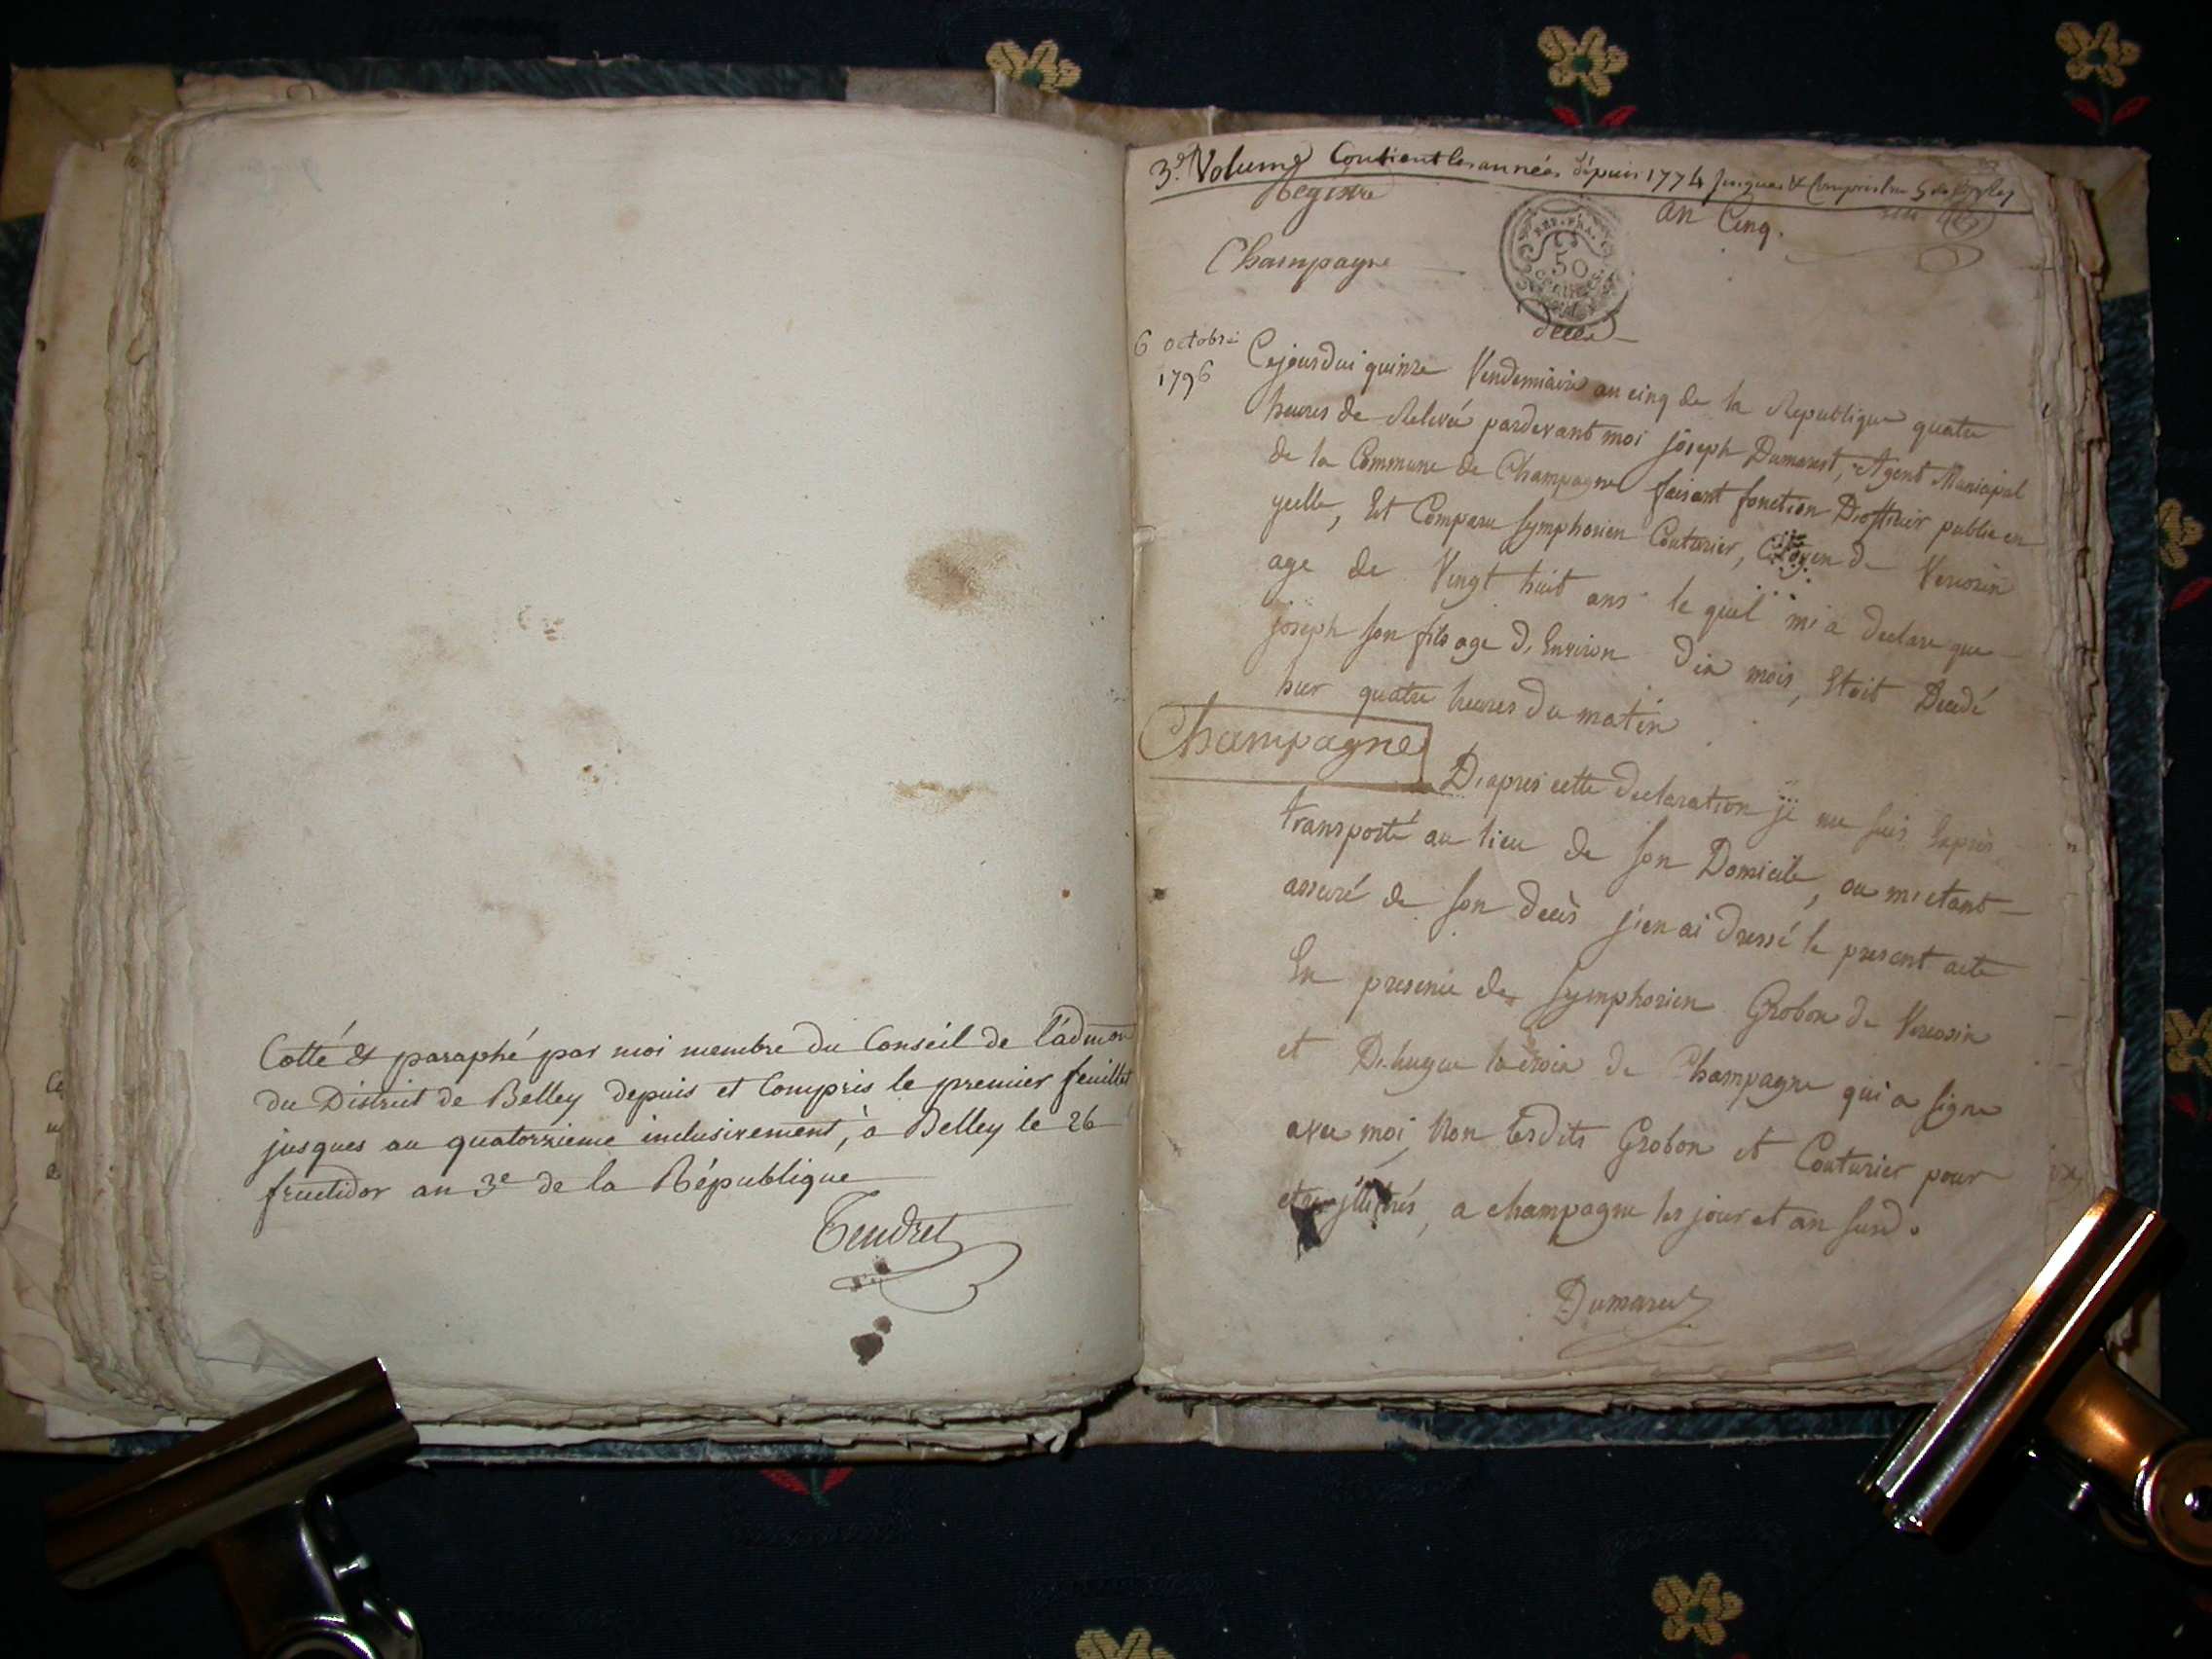 Cotté & paraphé par moi membre du Conseil de l'admon
du District de Belley depuis et Compris le premier feuillet
jusques au quatorzieme inclusivement, à Belley le 26
fructidor an 3e de la République
Tendret
3e. Volume Contient les années depuis 1774 jusques & Compris l'an 5
Registre
an Cinq.
Champagne
REP. FRA.
50
Centimes
deces
6 octobre
1796
Cejourdui quinze Vendemiaire an cinq de la Republique quatre
heures de Relevée pardevant moi joseph Dumarest, Agent Municipal
de la Commune de Champagne faisant fonction D'officier public en
ycelle, Est Comparu Symphorien Couturier, Citoyen de Vercosin
age de Vingt huit ans le quel m'a declare que
joseph son fils age d'Environ dix mois, Etoit Decedé
hier quatre heures du matin
Champagne
D'apres cette declaration je me suis Exprès
transporté au lieu de son Domicile, ou m'etant
assuré de son decès j'en ai dressé le present acte
En presence de Symphorien Grobon de Vercosin
et D'hugue de Champagne qui a signe
avec moi, Non lesdits Grobon et Couturier pour
etre illitrés, a champagne les jour et an susd.
Dumarest